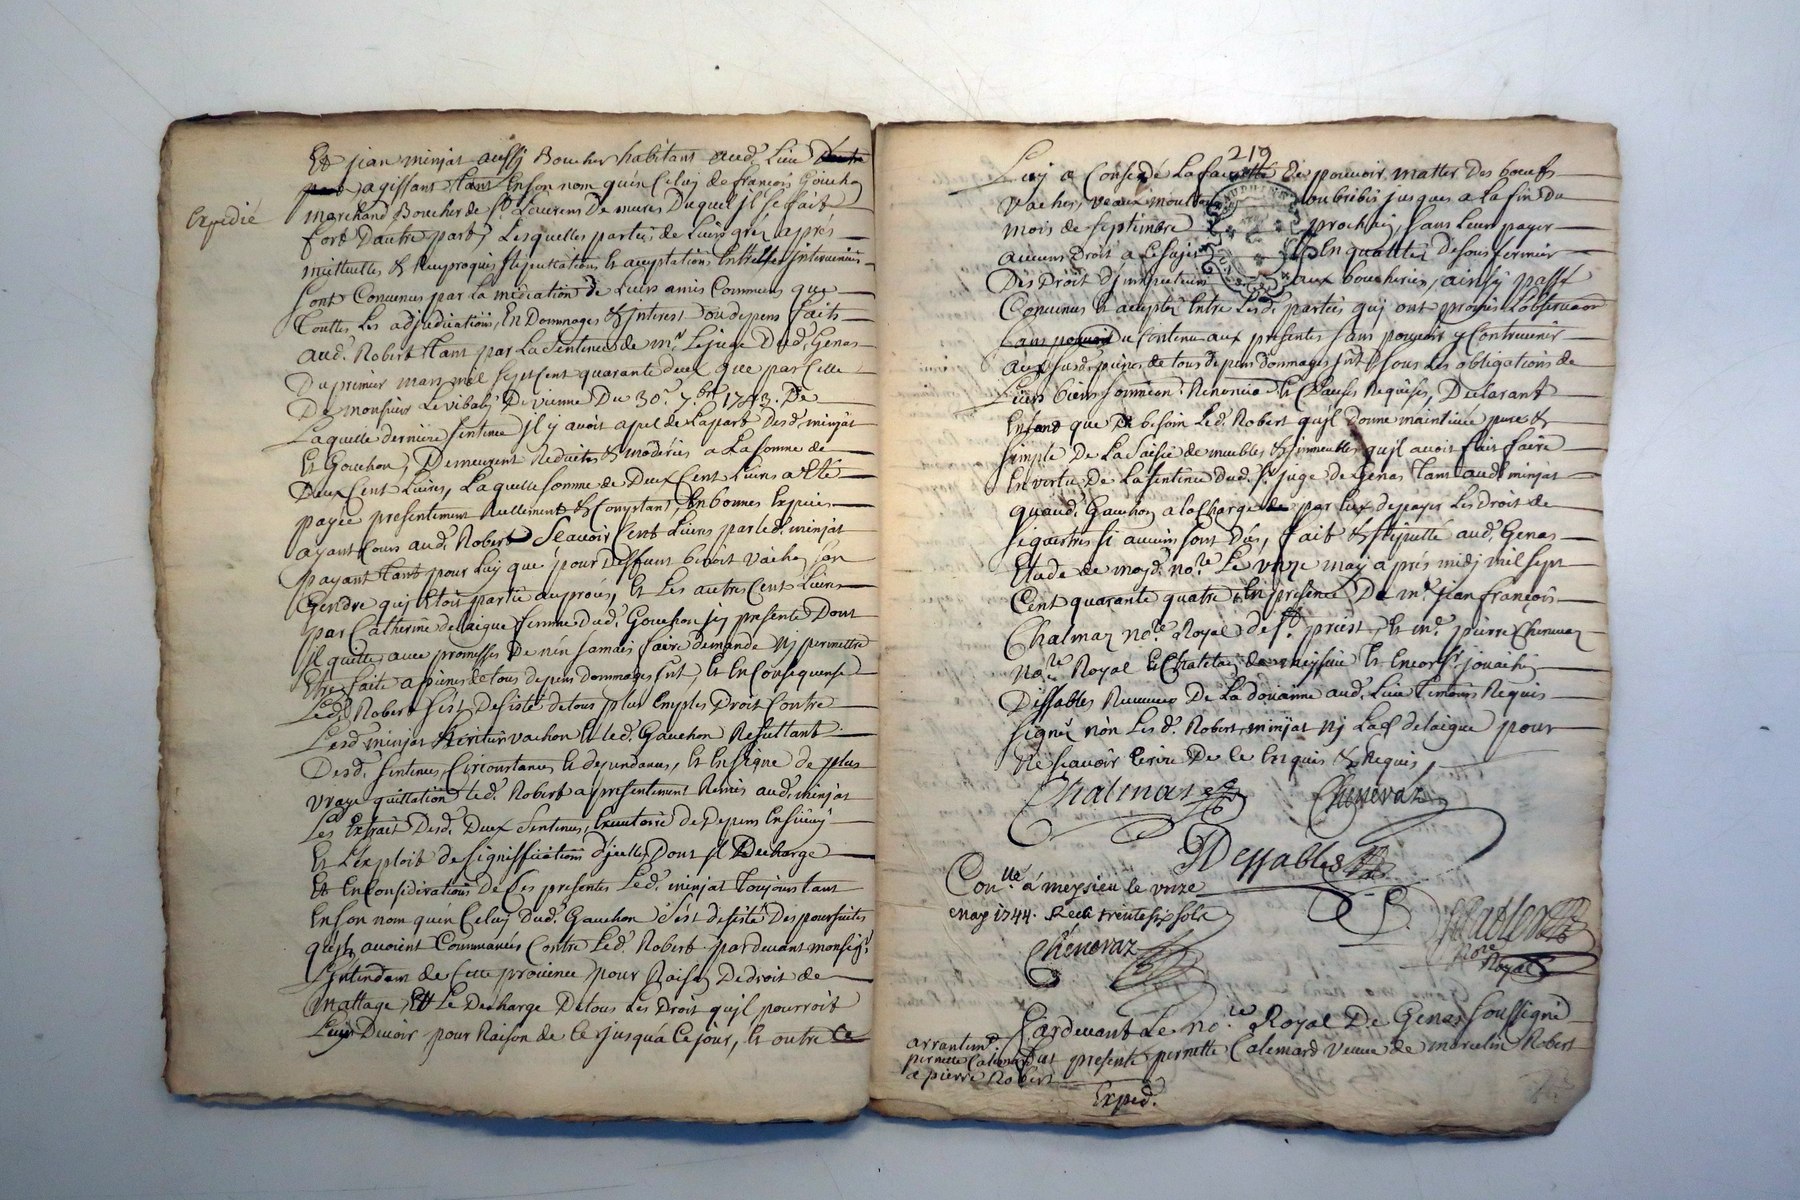 Expedié
Et jean minjat aussy Boucher habitant aud. Lieu
agissant tant En son nom quen Celuy de françois Gouchon
marchand Boucher de St. Leurens De mures Duquel jl se fait
fort Dautre part, Lesquelles parties de Leurs gréz aprés
mutuelles & Reciproques stipullations & aceptations Entrelles jntervenues
sont Convenus par La mediation de Leurs amis Communs que
Touttes Les adjudications, En Dommages & jnterest ou depens faits
aud. Robert tant par La Sentence de mr. Le juge Dud. Genas
Du primier mars mil sept Cent quarante deux que par Celle
De monsieur Le vibaly De vienne Du 30e. 7.bre 1743. De
Laquelle derniere sentence jl y avoit apel de La part Desd. minjat
Et Gouchon, Demeurent Reduites & moderées a La somme de
Deux Cent Livres, Laquelle somme de Deux Cent Livres a Eté
payée presentement Reellement & Comptant, En bonnes Especes
ayant Cours aud. Robert Scavoir Cent Livres par Led. minjat
payant tant pour Luy que pour Deffunt benoit vachon son
Gendre quj Etoit partie au procés, Et Les autres Cent Livres
par Catherine delaigue femme Dud. Gouchon jcy presente Dont
jl quitte avec promesses De nen jamais faire demande Nj permettre
Etre faite a peines de tous depens dommages jnt. Et En Consequence
Led. Robert s'est Desisté de tous plus amples Droit Contre
Lesd. minjat héritier vachon Et Led. Gauchon Resultant
Desd. sentences, Circonstances Et dependances, Et En signe de plus
vraye quittation Led. Robert a presentement Remis aud. minjat
Les Extrait Desd. Deux Sentences, Executoire de Depens Ensuivy
Et L'exploit de signiffications d'jcelles Dont jl Decharge
Et En Consideration De Ces presentes Led. minjat Toujours tant
En son nom quen Celuy Dud. Gauchon s'est desisté Des poursuites
quils avoient Commancés Contre Led. Robert pardevant monseigr.
L'jntendant de Cette province pour Raison De droit de
Mattage Et Le Decharge De tous Les Droit qu'jl pourroit
Luy Devoir pour Raison de Ce jusqu'a Ce jour, Et outre Ce
219
Luy a Conseдé La faculté de pouvoir matter Des bœufs
vaches, veaux moutons ou brebis jusques a La fin Du
mois de Septembre prochain sans Leur payer
aucuns Droit a Ce sujet En quallité De sous fermier
Des Droit D'jnspecteurs aux boucheries, ainsy passé
Convenus Et accepté Entre Lesd. parties quj ont promis L'observation
Du Contenu aux presentes sans pouvoir y Contrevenir
aux susd. peines de tous depens dommages jnt. sous Les obligations de
Leurs biens soumission Renonciaon. Et Clauses Requises, Declarant
En tant que De besoin Led. Robert qu'jl Donne mainlevée pure &
simple De La saisie de meubles & jmmeubles qu'jl avoit fait faire
En vertu De La sentence Dud. sr. juge De Genas tant aud. minjat
quaud. Gauchon a la Charge par Eux de payer Les Droit de
sequestres si aucuns sont Dus, fait & stipullé aud. Genas
Etude de moyd. no.re Le unze may aprés midj mil sept
Cent quarante quatre En presence De me. jean françois
Chalmas no.re Royal de St. priest Et me. pierre Chenevaz
No.re Royal Et Chatelain de meyssieu Et Encor sr. jouachin
Dessables Receveur De La doüanne aud. Lieu Temoins Requis
signés non Les d. Robert, minjat Nj Lad. delaigue pour
Ne scavoir Ecrire De Ce Enquis & Requis,
Chalmas
Chenevaz
JDessables
Con.lle a meysieu le unze
may 1744. Reçu trente six sols
Chenevaz
No.re
Royal
Pardevant Le no.re Royal De Genas soussigné
fut presente pernette Calemard veuve de marcelin Robert
arrantemt.
pernette Calemard
a pierre Robert
Exped.